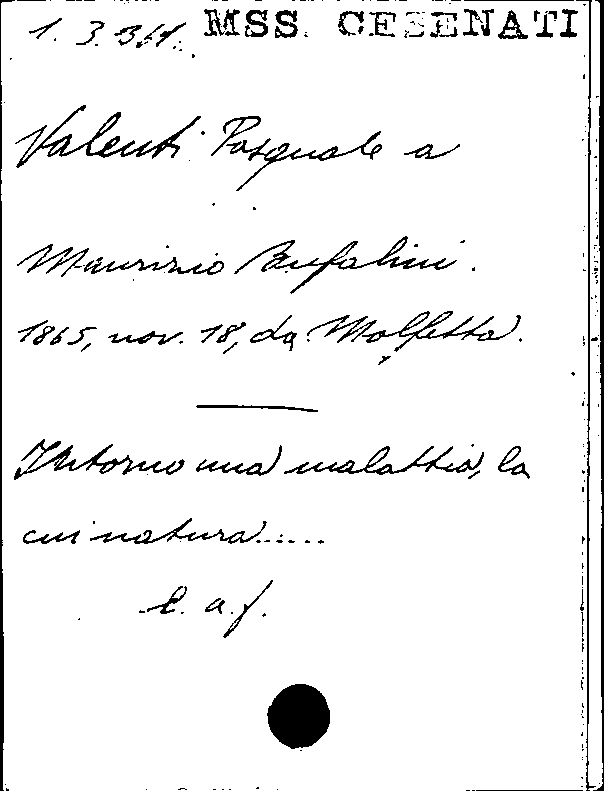 1. 3. 361. MSS. CESENATI
Valenti Pasquale a
Maurizio Bufalini.
1865, nov. 18, da Molfetta.
Intorno una malattia, la
cui natura.....
l. a. f.